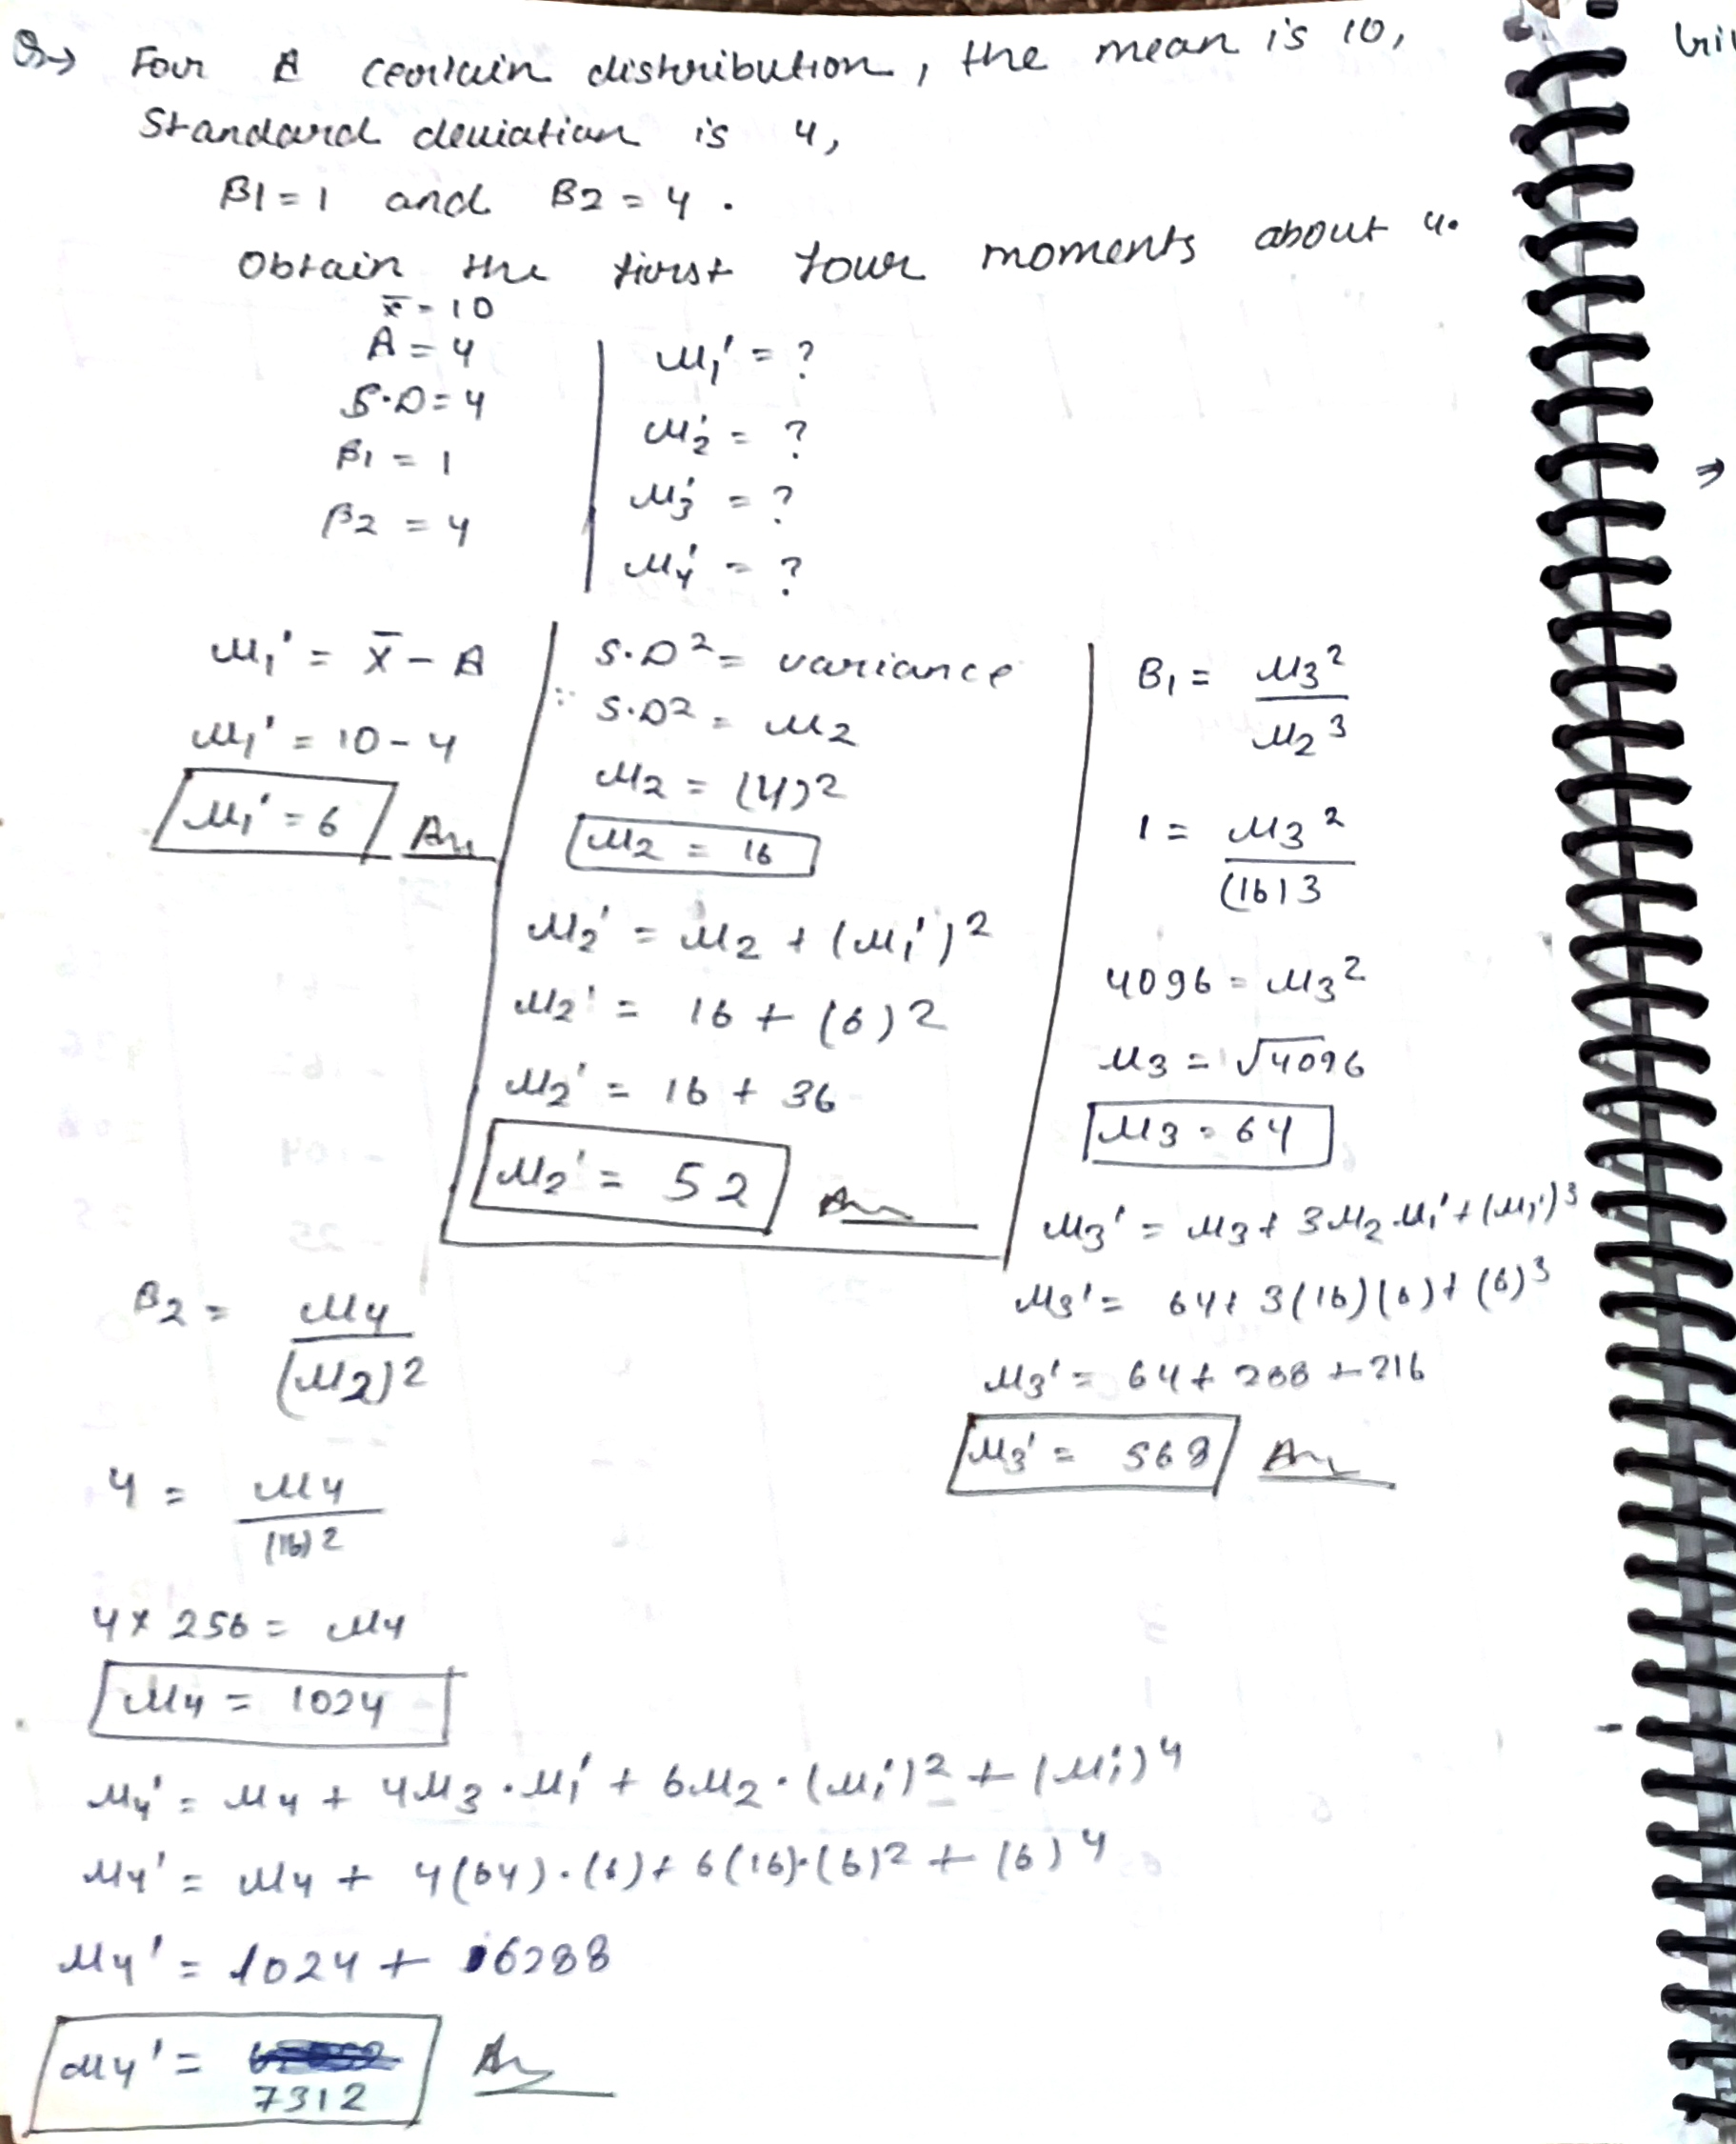 Q→ For A certain distribution, the mean is 10,
Standard deviation is 4,
β1 = 1 and β2 = 4 .
Obtain the first four moments about 4.
x̄ = 10
A = 4
S.D = 4
β1 = 1
β2 = 4
μ1' = ?
μ2' = ?
μ3' = ?
μ4' = ?
μ1' = x̄ - A
μ1' = 10 - 4
μ1' = 6 Ans
S.D² = variance
∵ S.D² = μ2
μ2 = (4)²
μ2 = 16
μ2' = μ2 + (μ1')²
μ2' = 16 + (6)²
μ2' = 16 + 36
μ2' = 52 Ans
β1 = μ3² / μ2³
1 = μ3² / (16)3
4096 = μ3²
μ3 = √4096
μ3 = 64
μ3' = μ3 + 3μ2.μ1' + (μ1')³
μ3' = 64 + 3(16)(6) + (6)³
μ3' = 64 + 288 + 216
μ3' = 568 Ans
β2 = μ4 / (μ2)²
4 = μ4 / (16)²
4 × 256 = μ4
μ4 = 1024
μ4' = μ4 + 4μ3 . μ1' + 6μ2 . (μ1')² + (μ1')⁴
μ4' = μ4 + 4(64) . (6) + 6(16).(6)² + (6)⁴
μ4' = 1024 + 6288
μ4' = 7312 Ans